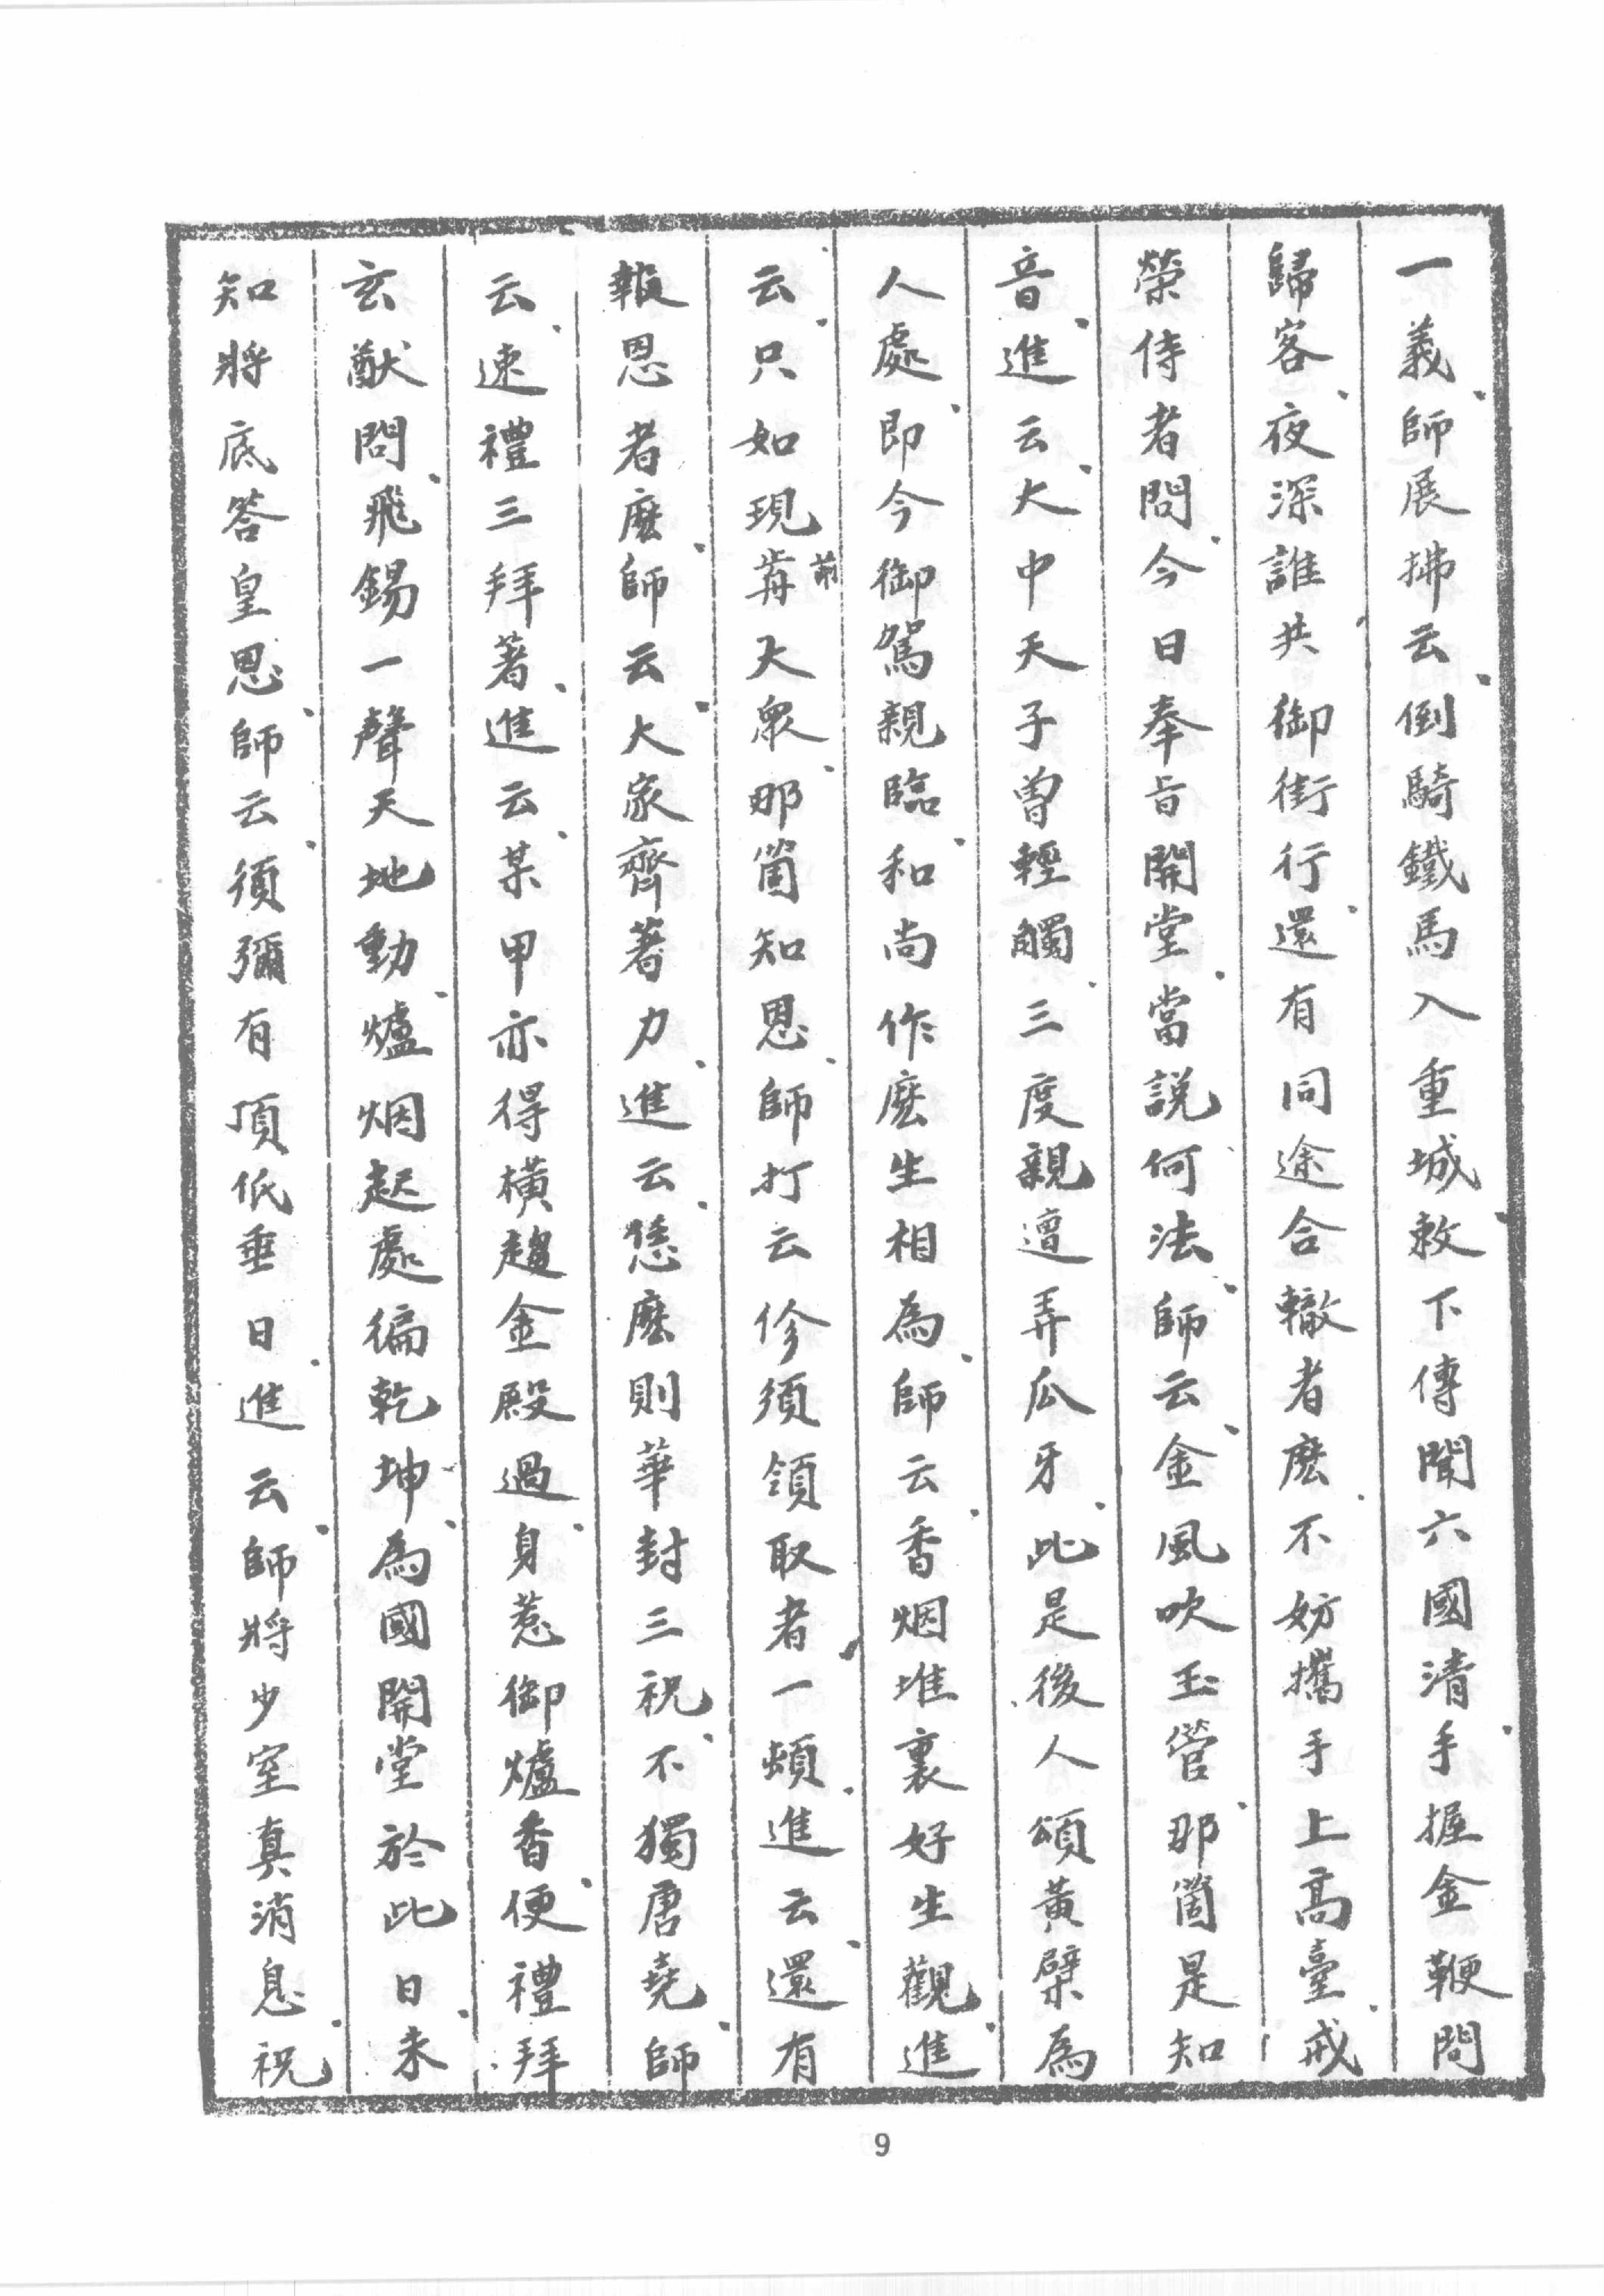 一義師展拂云倒騎鐵馬入重城敕下傳聞六國清手握金鞭問
歸客夜深誰共御街行還有同途合轍者麽不妨攜手上高臺戒
榮侍者問今日奉旨開堂當說何法師云金風吹玉管那箇是知
音進云大中天子曾輕觸三度親遭弄瓜牙此是後人頌黃檗為
人處即今御駕親臨和尚作麽生相為師云香烟堆裏好生觀進
云只如現歬前大眾那箇知恩師打云伱須領取者一頓進云還有
報恩者麽師云大家齊著力進云恁麽則華封三祝不獨唐堯師
云速禮三拜著進云某甲亦得橫趨金殿過身惹御爐香便禮拜
玄猷問飛錫一聲天地動爐烟起處徧乾坤為國開堂於此日未
知將底答皇恩師云須彌有頂低垂日進云師將少室真消息祝
9